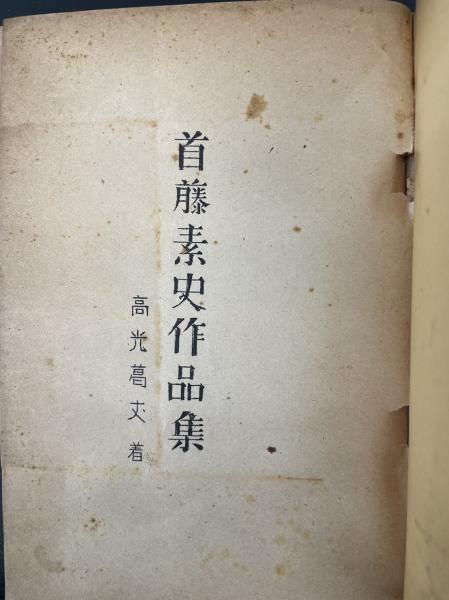 首藤素史作品集
高光葛丈 着